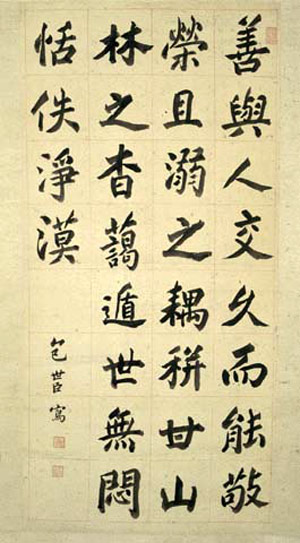 善與人交久而能敬
榮且溺之耦耕甘山
林之杳藹遁世無悶
恬佚淨漠
包世臣寫